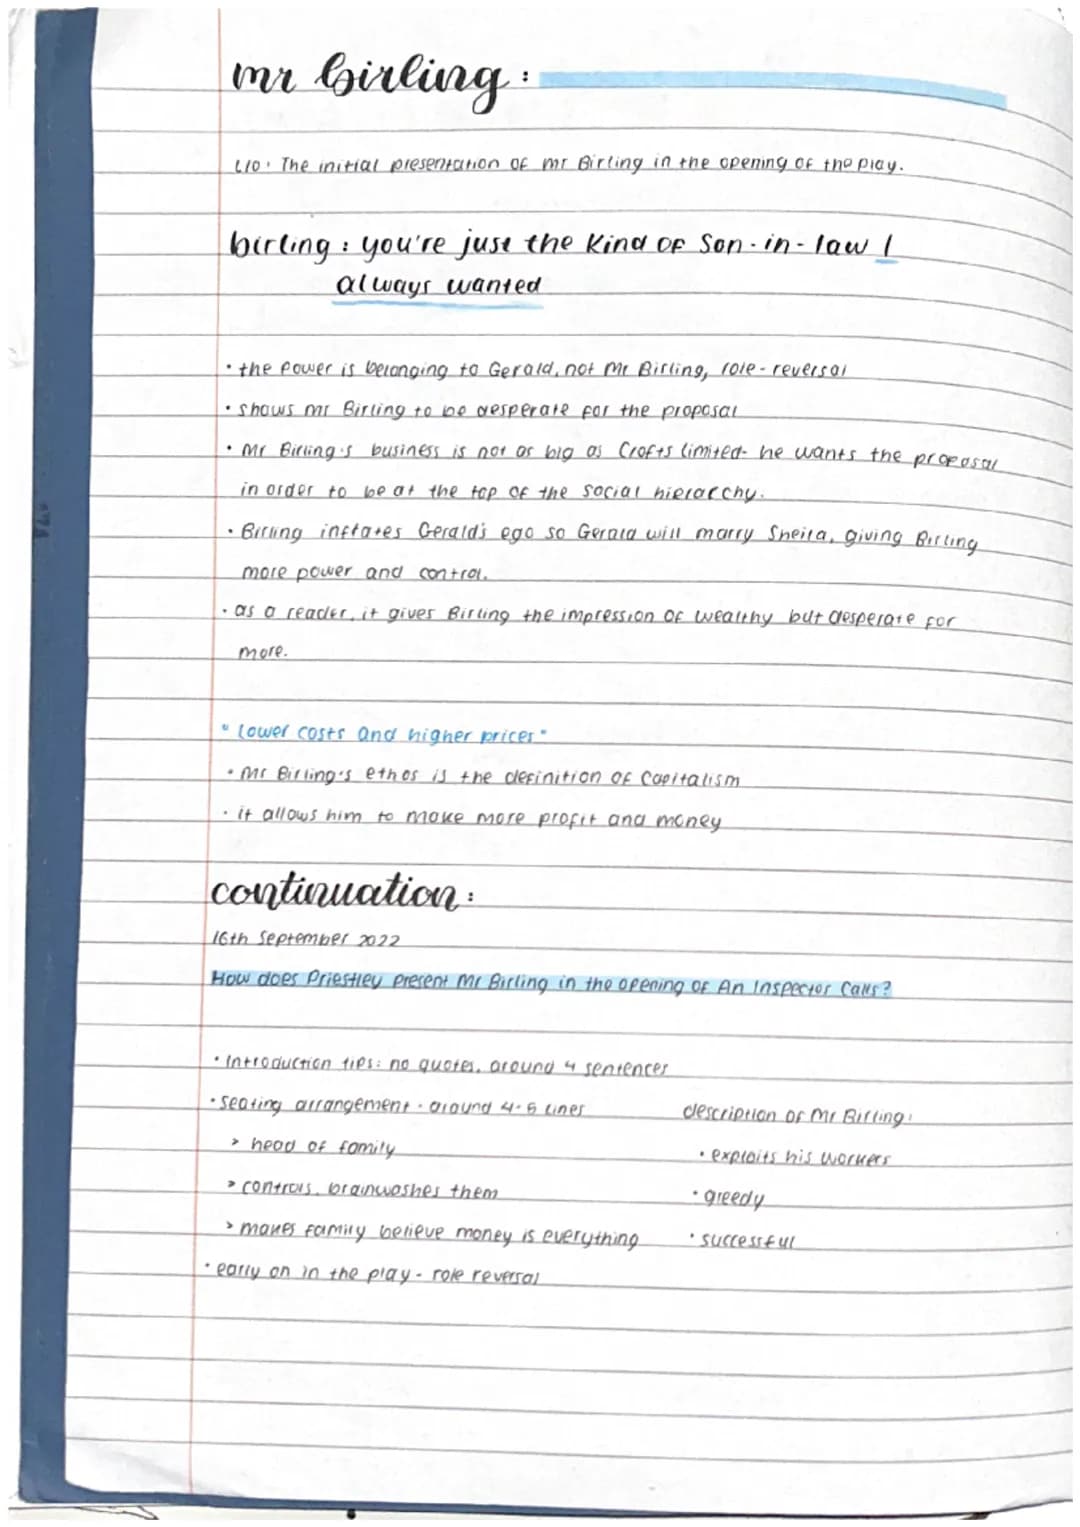 mr birling:
L/O: The initial presentation of mr Birling in the opening of the play.
birling: you're just the kind of Son-in-law I
always wanted
• the power is belonging to Gerald, not Mr Birling, role-reversal
• shows mr Birling to be desperate for the proposal
• Mr Birling's business is not as big as Crofts limited- he wants the proposal
in order to be at the top of the social hierarchy.
• Birling inflates Gerald's ego so Gerald will marry Sheila, giving Birling
more power and control.
• as a reader, it gives Birling the impression of wealthy but desperate for
more.
"Lower costs and higher prices"
• Mr Birling's ethos is the definition of Capitalism
• it allows him to make more profit and money
continuation:
16th September 2022
How does Priestley present Mr Birling in the opening of An Inspector Calls?
• Introduction tips: no quotes, around 4 sentences
• seating arrangement - around 4-5 lines
> head of family
> controls, brainwashes them
> makes family believe money is everything
• early on in the play - role reversal
description of Mr Birling:
• exploits his workers
• greedy
• successful